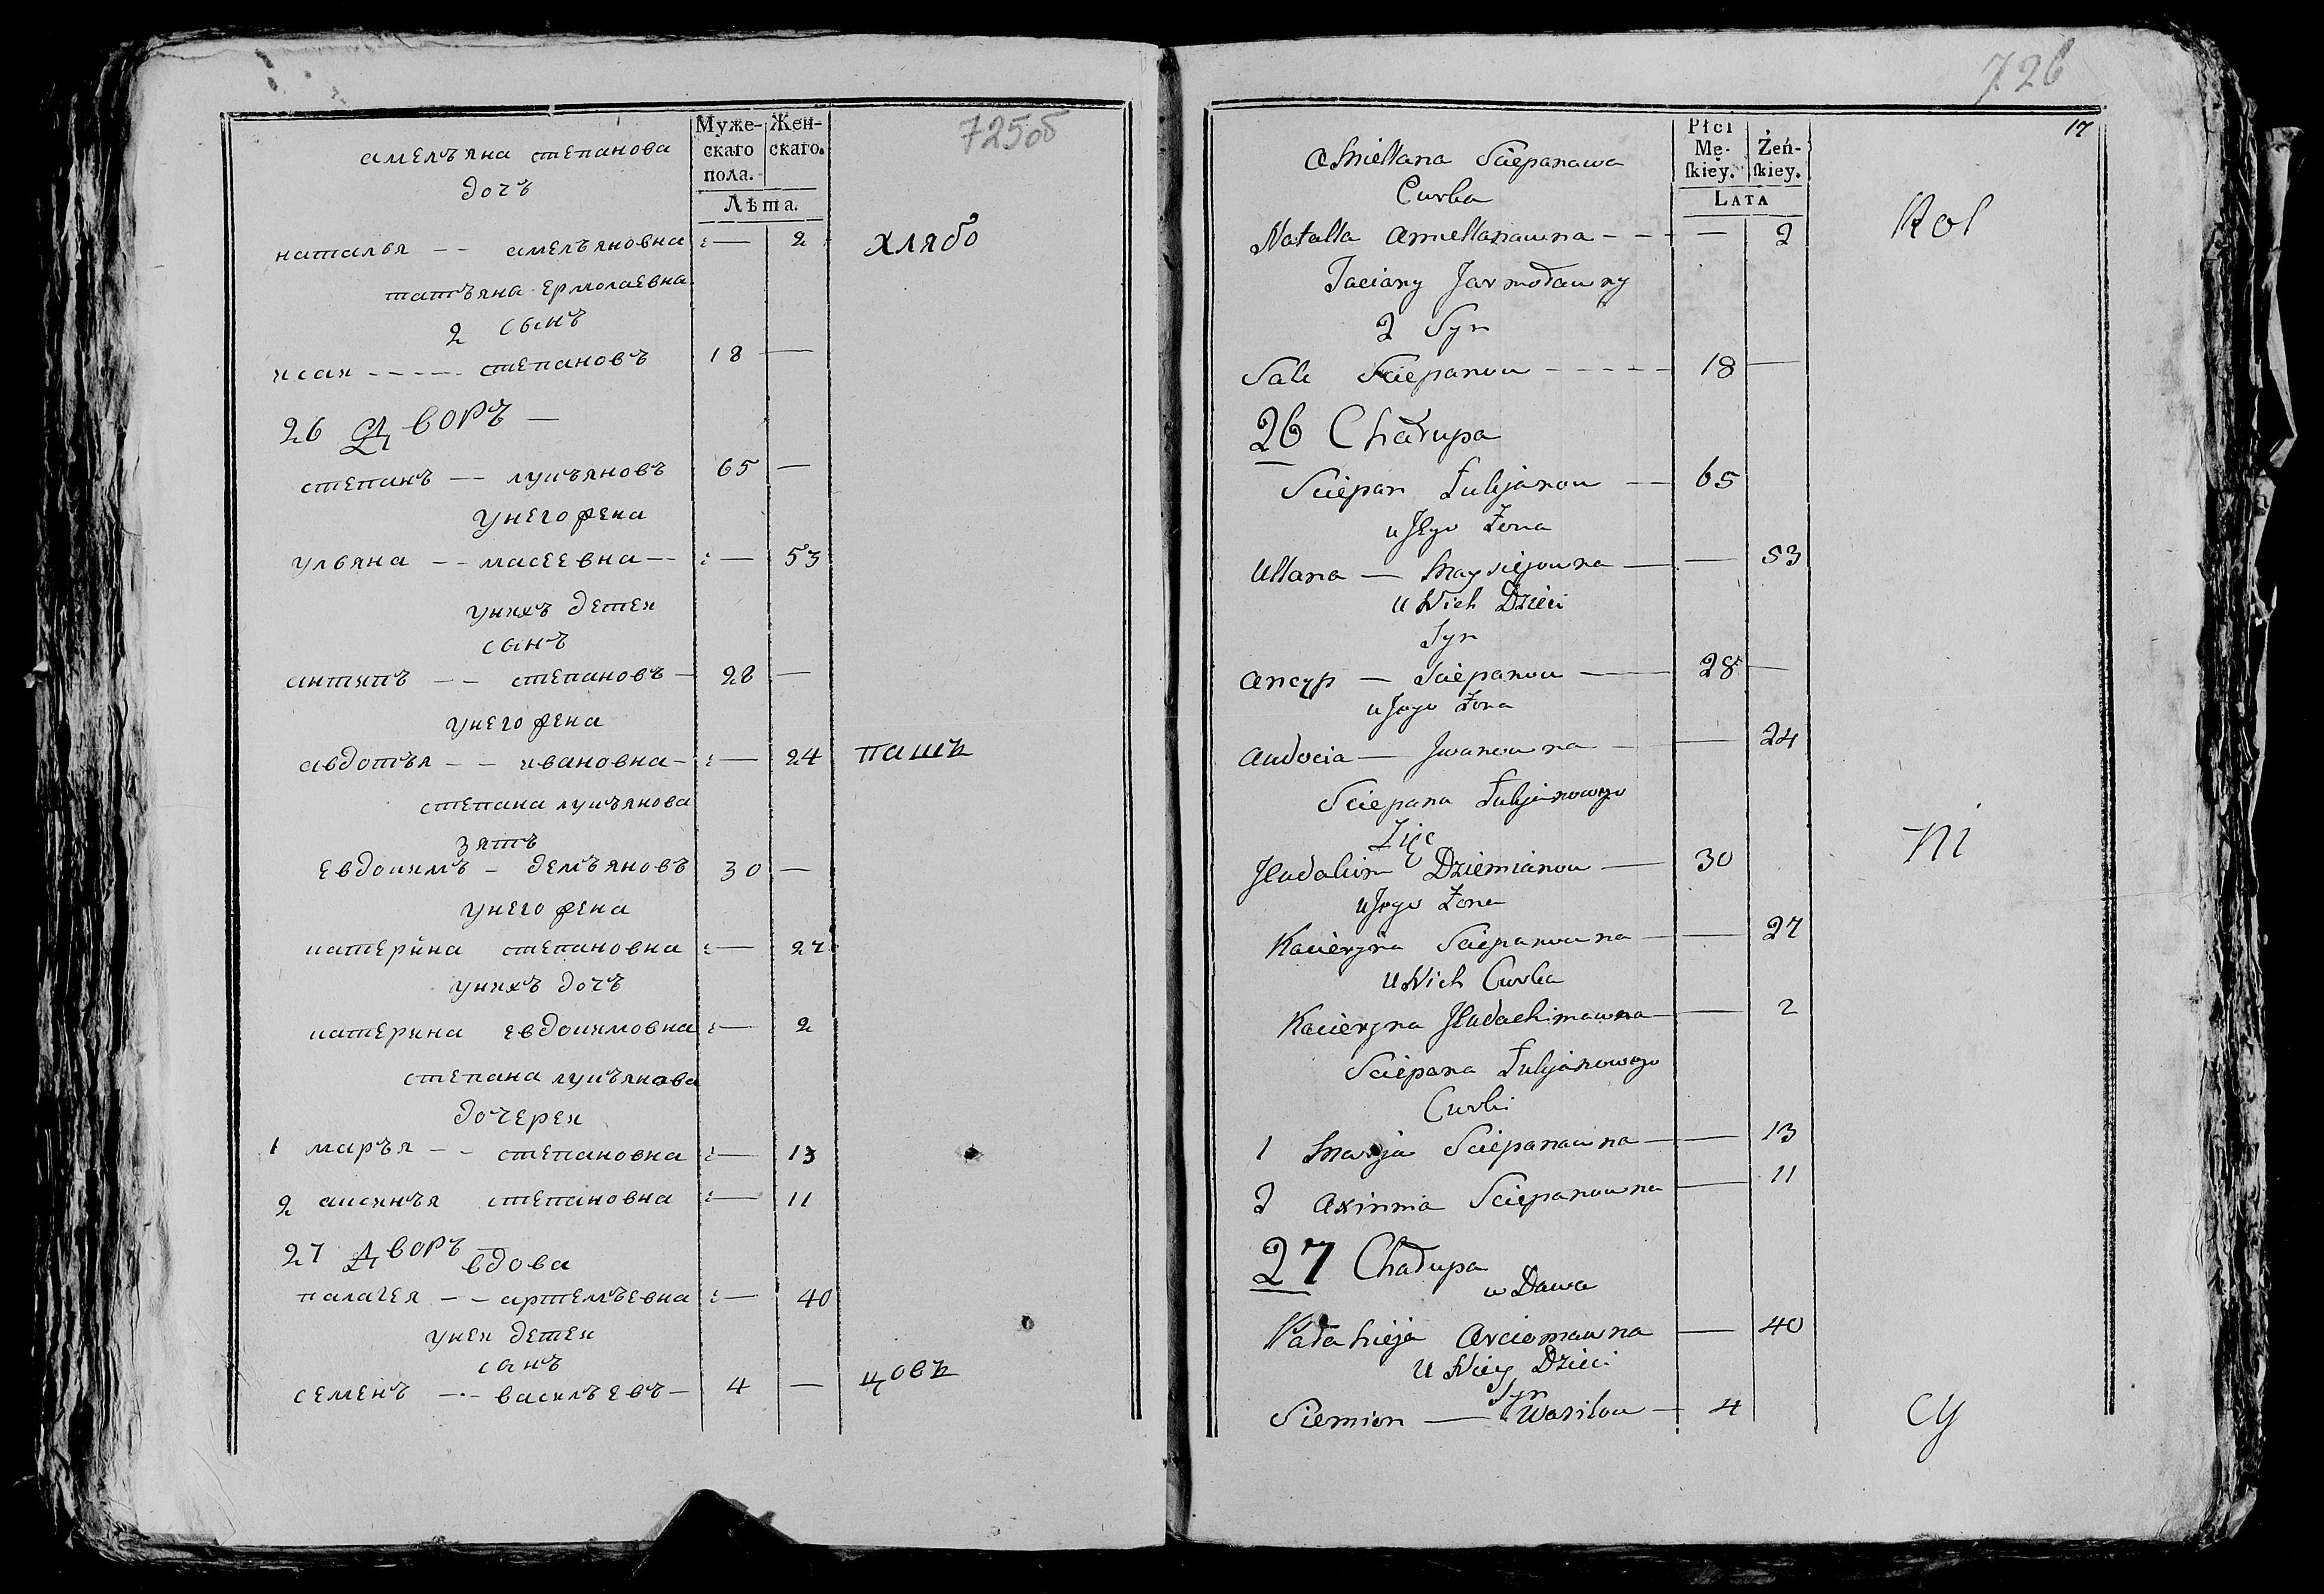 725об
Муже- Жен-
скаго скаго.
пола.
Лѣта.
амелъяна степанова
дочъ
наталья -- амелъяновна — 2 хлябо
татъяна ермолаевна
2 сынъ
исаи ----- степановъ 18 —
26 Дворъ —
степанъ -- лукъяновъ 65 —
унего жена
ульяна -- масеевна -- — 53
унихъ детеи
сынъ
антипъ -- степановъ - 28 —
унего жена
авдотъя -- ивановна - — 24 пашъ
степана лукъянова
зятъ
евдокимъ - демъяновъ 30 —
унего жена
катерина степановна — 27
унихъ дочъ
катерина евдокимовна — 2
степана лукъянова
дочереи
1 маръя -- степановна — 13
2 аксинъя степановна — 11
27 Дворъ вдова
палагея -- артемъевна — 40
унеи детеи
санъ
семенъ -- василъевъ - 4 — цовъ
726
17
Płci
Mę- Żeń-
skiey. skiey.
LATA
Amiellana Sciepanawa
Curka
Natalla Amiellanawna - - - — 2 Kol
Taciany Jarmoławny
2 Syn
Sali Sciepanou - - - - - 18 —
26 Chałupa
Sciepan Łukjanou — 65
u Jego Żona
Ullana — Maysiejowna — — 53
u Nich Dzieci
Syn
Ancyp — Sciepanou — 28 —
u Jego Żona
Audocia — Jwanouna — — 24
Sciepana Łukjanowego
Zięc
Jeudakim Dziemianou — 30 ni
u Jego Żona
Kacieryna Sciepanouna — — 27
u Nich Curka
Kacieryna Jeudachimawna — — 2
Sciepana Łukjanowego
Curki
1 Marja Sciepanauna — — 13
2 Axinnia Sciepanouna — 11
27 Chałupa
wDawa
Pałahieja Arciomawna — 40
u Niey Dzieci
Syn
Siemion — Wasilou — 4 cy